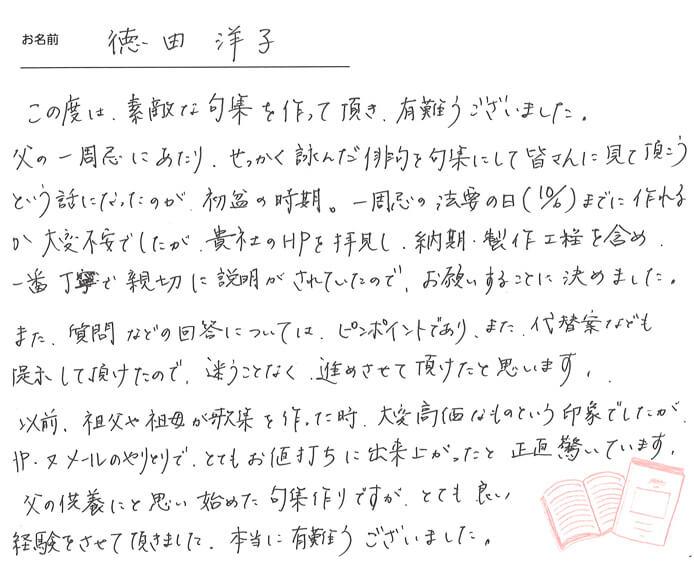 お名前 徳田 洋子
この度は、素敵な句集を作って頂き、有難うございました。
父の一周忌にあたり、せっかく詠んだ俳句を句集にして皆さんに見て頂こう
という話になったのが、初盆の時期。一周忌の法要の日(10/6)までに作れる
か大変不安でしたが、貴社のHPを拝見し、納期・製作工程を含め、
一番丁寧で親切に説明がされていたので、お願いすることに決めました。
また、質問などの回答については、ピンポイントであり、また、代替案なども
提示して頂けたので、迷うことなく、進めさせて頂けたと思います。
以前、祖父や祖母が歌集を作った時、大変高価なものという印象でしたが、
HP・メールのやりとりで、とてもお値打ちに出来上がったと正直驚いています。
父の供養にと思い始めた句集作りですが、とても良い
経験をさせて頂きまして、本当に有難うございました。